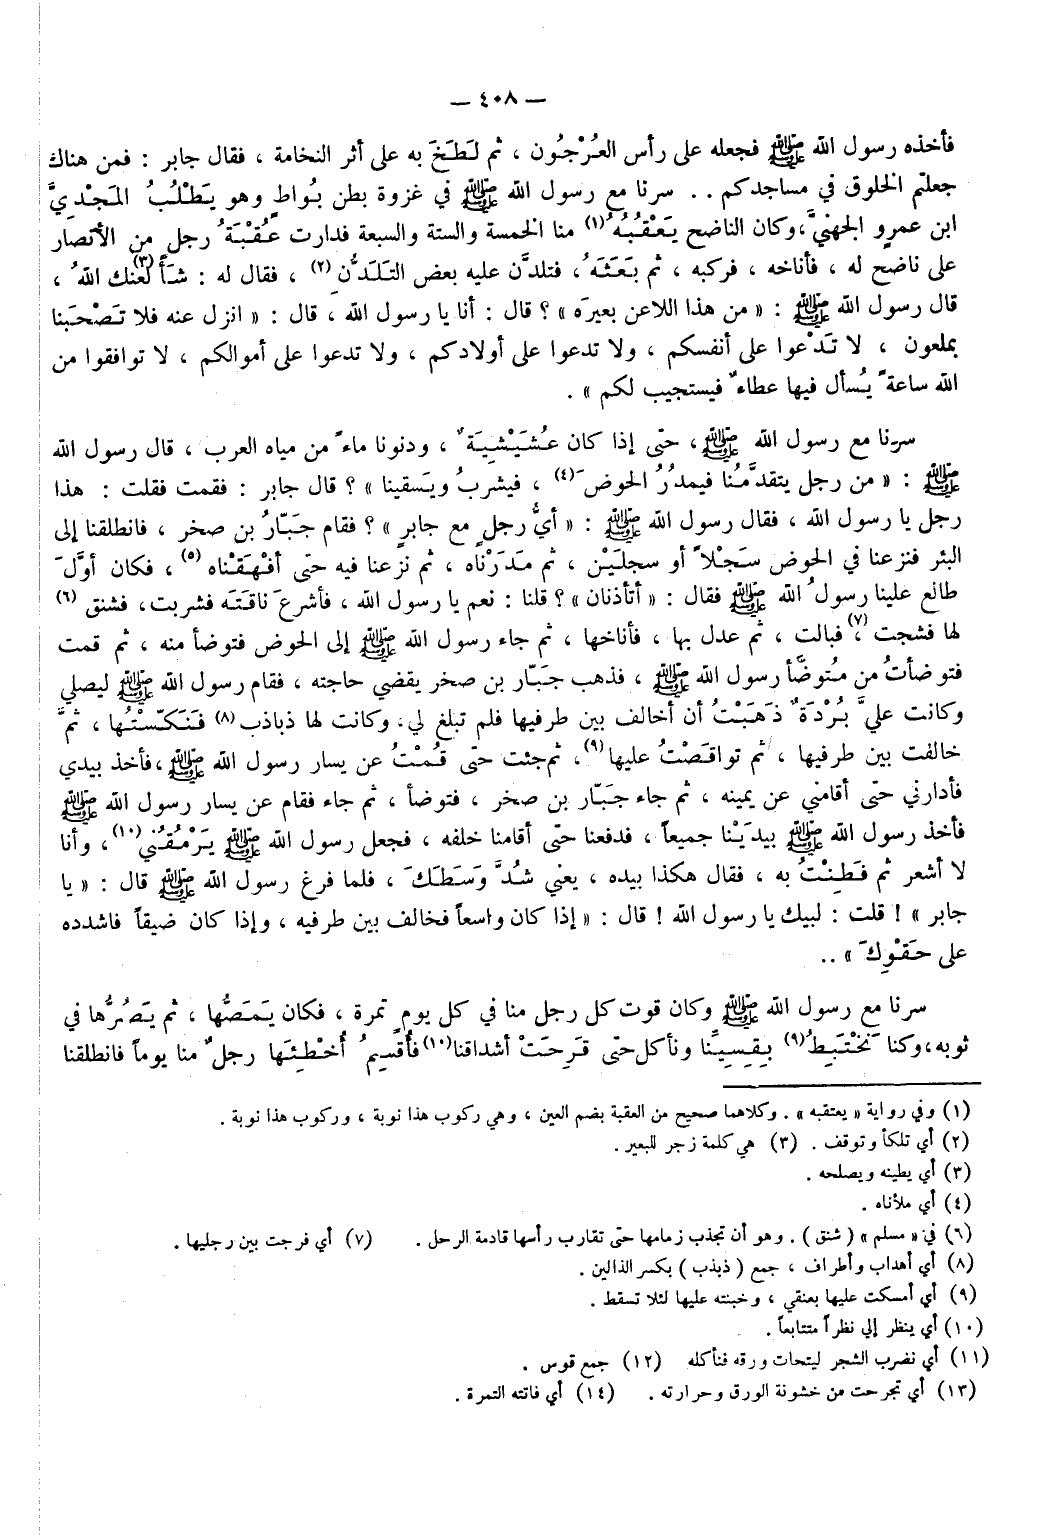 — ٤٠٨ —
فأخذه رسول الله ﷺ فجعله على رأس العُرْجُون ، ثم لَطَخَ به على أثر النخامة ، فقال جابر : فمن هناك
جعلتم الخلوق في مساجدكم .. سرنا مع رسول الله ﷺ في غزوة بطن بُواطٍ وهو يَطْلُبُ المَجْدِيَّ
ابن عمرٍو الجهنيَّ ، وكان الناضح يَعْقُبُهُ (١) منا الخمسة والستة والسبعة فدارت عُقْبَةُ رجلٍ من الأنصار
على ناضح له ، فأناخه ، فركبه ، ثم بَعَثَهُ ، فتلدَّن عليه بعض التَلَدُّن (٢) ، فقال له : شَأْ (٣) لعنك اللهُ ،
قال رسول الله ﷺ : « من هذا اللاعن بعيرَه » ؟ قال : أنا يا رسول الله ، قال : « انزل عنه فلا تَصْحَبنا
بملعون ، لا تَدْعوا على أنفسكم ، ولا تدعوا على أولادكم ، ولا تدعوا على أموالكم ، لا توافقوا من
الله ساعةً يُسأل فيها عطاءٌ فيستجيب لكم » .
سرنا مع رسول الله ﷺ ، حتى إذا كان عُشَيْشِيَةٌ ، ودنونا ماءً من مياه العرب ، قال رسول الله
ﷺ : « من رجل يتقدَّمُنا فيمدُرُ الحوضَ (٤) ، فيشربُ ويَسقينا » ؟ قال جابر : فقمت فقلت : هذا
رجل يا رسول الله ، فقال رسول الله ﷺ : « أيُّ رجلٍ مع جابرٍ » ؟ فقام جَبّارُ بن صخر ، فانطلقنا إلى
البئر فنزعنا في الحوض سَجْلاً أو سجلَيْن ، ثم مَدَرْناه ، ثم نزعنا فيه حتى أفْهَقْناه (٥) ، فكان أوَّلَ
طالع علينا رسولُ الله ﷺ فقال : « أتأذنان » ؟ قلنا : نعم يا رسول الله ، فأشرعَ ناقَتَه فشربت، فشنق (٦)
لها فشجت (٧) ، فبالت ، ثم عدل بها ، فأناخها ، ثم جاء رسول الله ﷺ إلى الحوض فتوضأ منه ، ثم قمت
فتوضأتُ من مُتوضَّأ رسول الله ﷺ ، فذهب جَبّار بن صخر يقضي حاجته ، فقام رسول الله ﷺ ليصلي
وكانت عليَّ بُرْدَةٌ ذَهَبْتُ أن أخالف بين طرفيها فلم تبلغ لي، وكانت لها ذباذب (٨) فَنَكَّسْتُها ، ثمَّ
خالفت بين طرفيها ، ثم تواقَصْتُ عليها (٩) ، ثم جئت حتى قُمْتُ عن يسار رسول الله ﷺ ، فأخذ بيدي
فأدارني حتى أقامني عن يمينه ، ثم جاء جَبّار بن صخر ، فتوضأ ، ثم جاء فقام عن يسار رسول الله ﷺ
فأخذ رسول الله ﷺ بيدَيْنا جميعاً ، فدفعنا حتى أقامنا خلفه ، فجعل رسول الله ﷺ يَرْمُقُني (١٠) ، وأنا
لا أشعر ثم فَطِنْتُ به ، فقال هكذا بيده ، يعني شُدَّ وَسَطَكَ ، فلما فرغ رسول الله ﷺ قال : « يا
جابر » ! قلت : لبيك يا رسول الله ! قال : « إذا كان واسعاً فخالف بين طرفيه ، وإذا كان ضيقاً فاشدده
على حَقْوِكَ » ..
سرنا مع رسول الله ﷺ وكان قوت كل رجل منا في كل يومٍ تمرة ، فكان يَمَصُّها ، ثم يَصُرُّها في
ثوبه، وكنا نَخْتَبِطُ (٩) بِقِسِيِّنا ونأكل حتى قَرِحَتْ أشداقنا (١٠) فأُقسِمُ أُخْطِئَها رجلٌ منا يوماً فانطلقنا
(١) وفي رواية « يعتقبه » . وكلاهما صحيح من العقبة بضم العين ، وهي ركوب هذا نوبة ، وركوب هذا نوبة .
(٢) أي تلكأ وتوقف . (٣) هي كلمة زجر للبعير .
(٣) أي يطينه ويصلحه .
(٤) أي ملأناه .
(٦) في « مسلم » ( شنق ) . وهو أن تجذب زمامها حتى تقارب رأسها قادمة الرحل . (٧) أي فرجت بين رجليها .
(٨) أي أهداب وأطراف ، جمع ( ذبذب ) بكسر الذالين .
(٩) أي أمسكت عليها بعنقي ، وخبنته عليها لئلا تسقط .
(١٠) أي ينظر إلي نظراً متتابعاً .
(١١) أي نضرب الشجر ليتحات ورقه فنأكله (١٢) جمع قوس .
(١٣) أي تجرحت من خشونة الورق وحرارته . (١٤) أي فاتته التمرة .